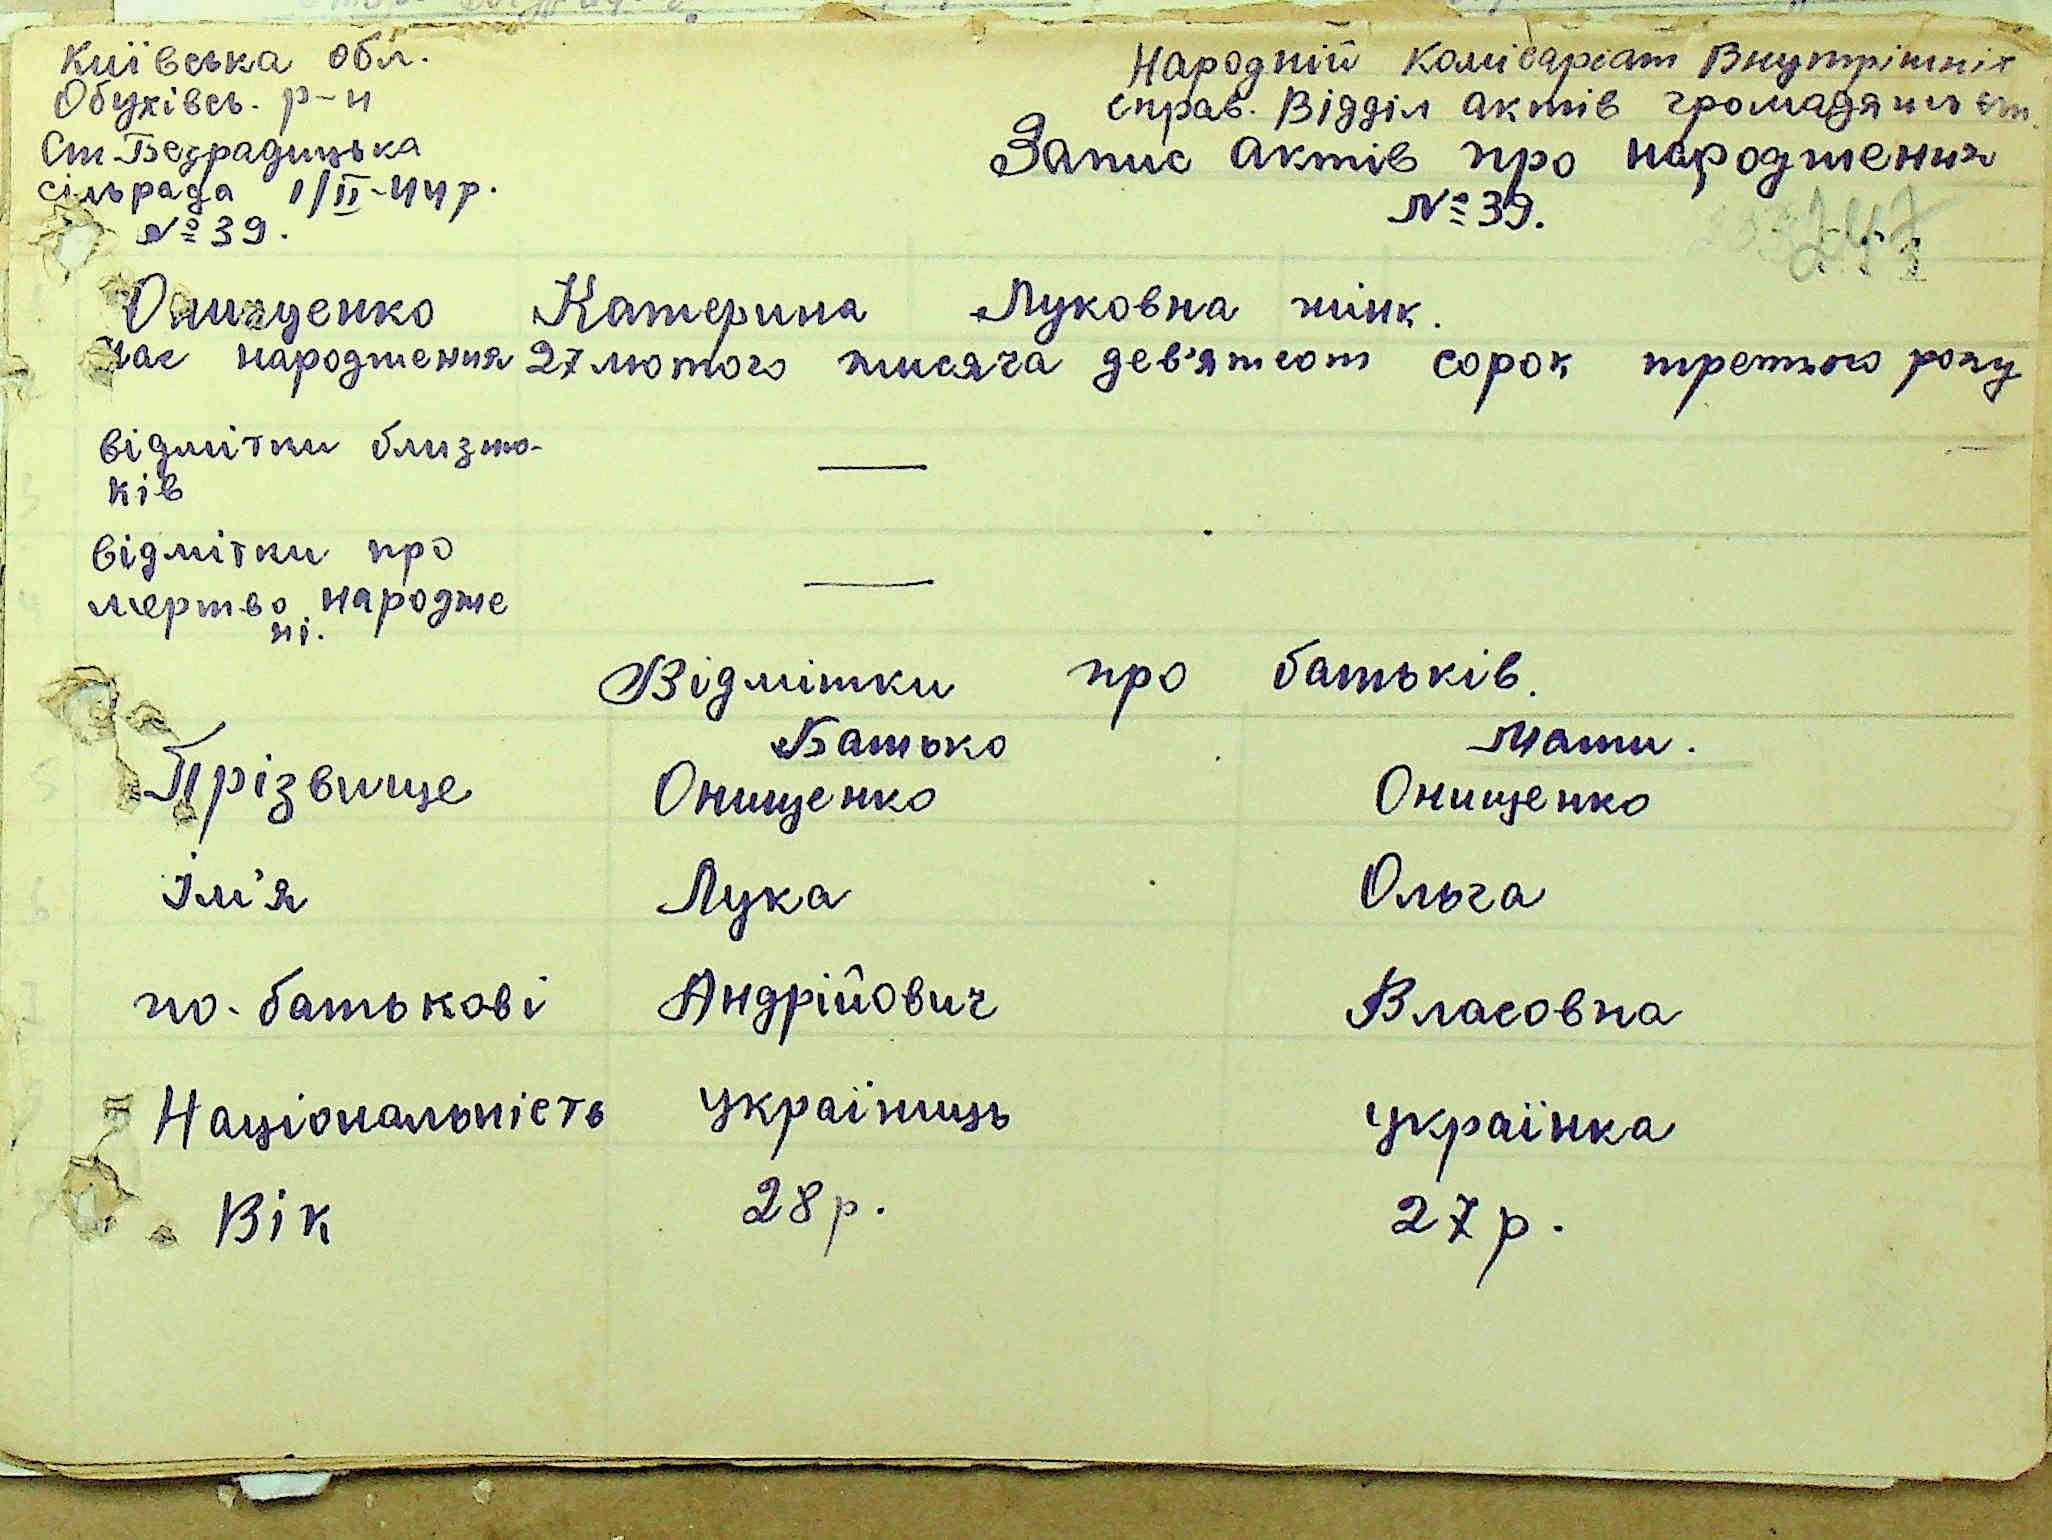 Київська обл.
Обухівсь. р-н
Ст-Безрадицька
сільрада 1/II-44р.
№ 39.
Народній Комісаріат Внутрішніх
справ. Відділ актів громадянськ ст.
Запис Актів про народження
№ 39.
Онищенко Катерина Луковна жінк.
Час народження 27 лютого тисяча дев'ятсот сорок третього року
відмітки близню-
ків —
відмітки про
мертво народже
ні. —
Відмітки про батьків.
Батько Мати.
Прізвище Онищенко Онищенко
Ім'я Лука Ольга
по-батькові Андрійович Власовна
Національність українць українка
Вік 28 р. 27 р.